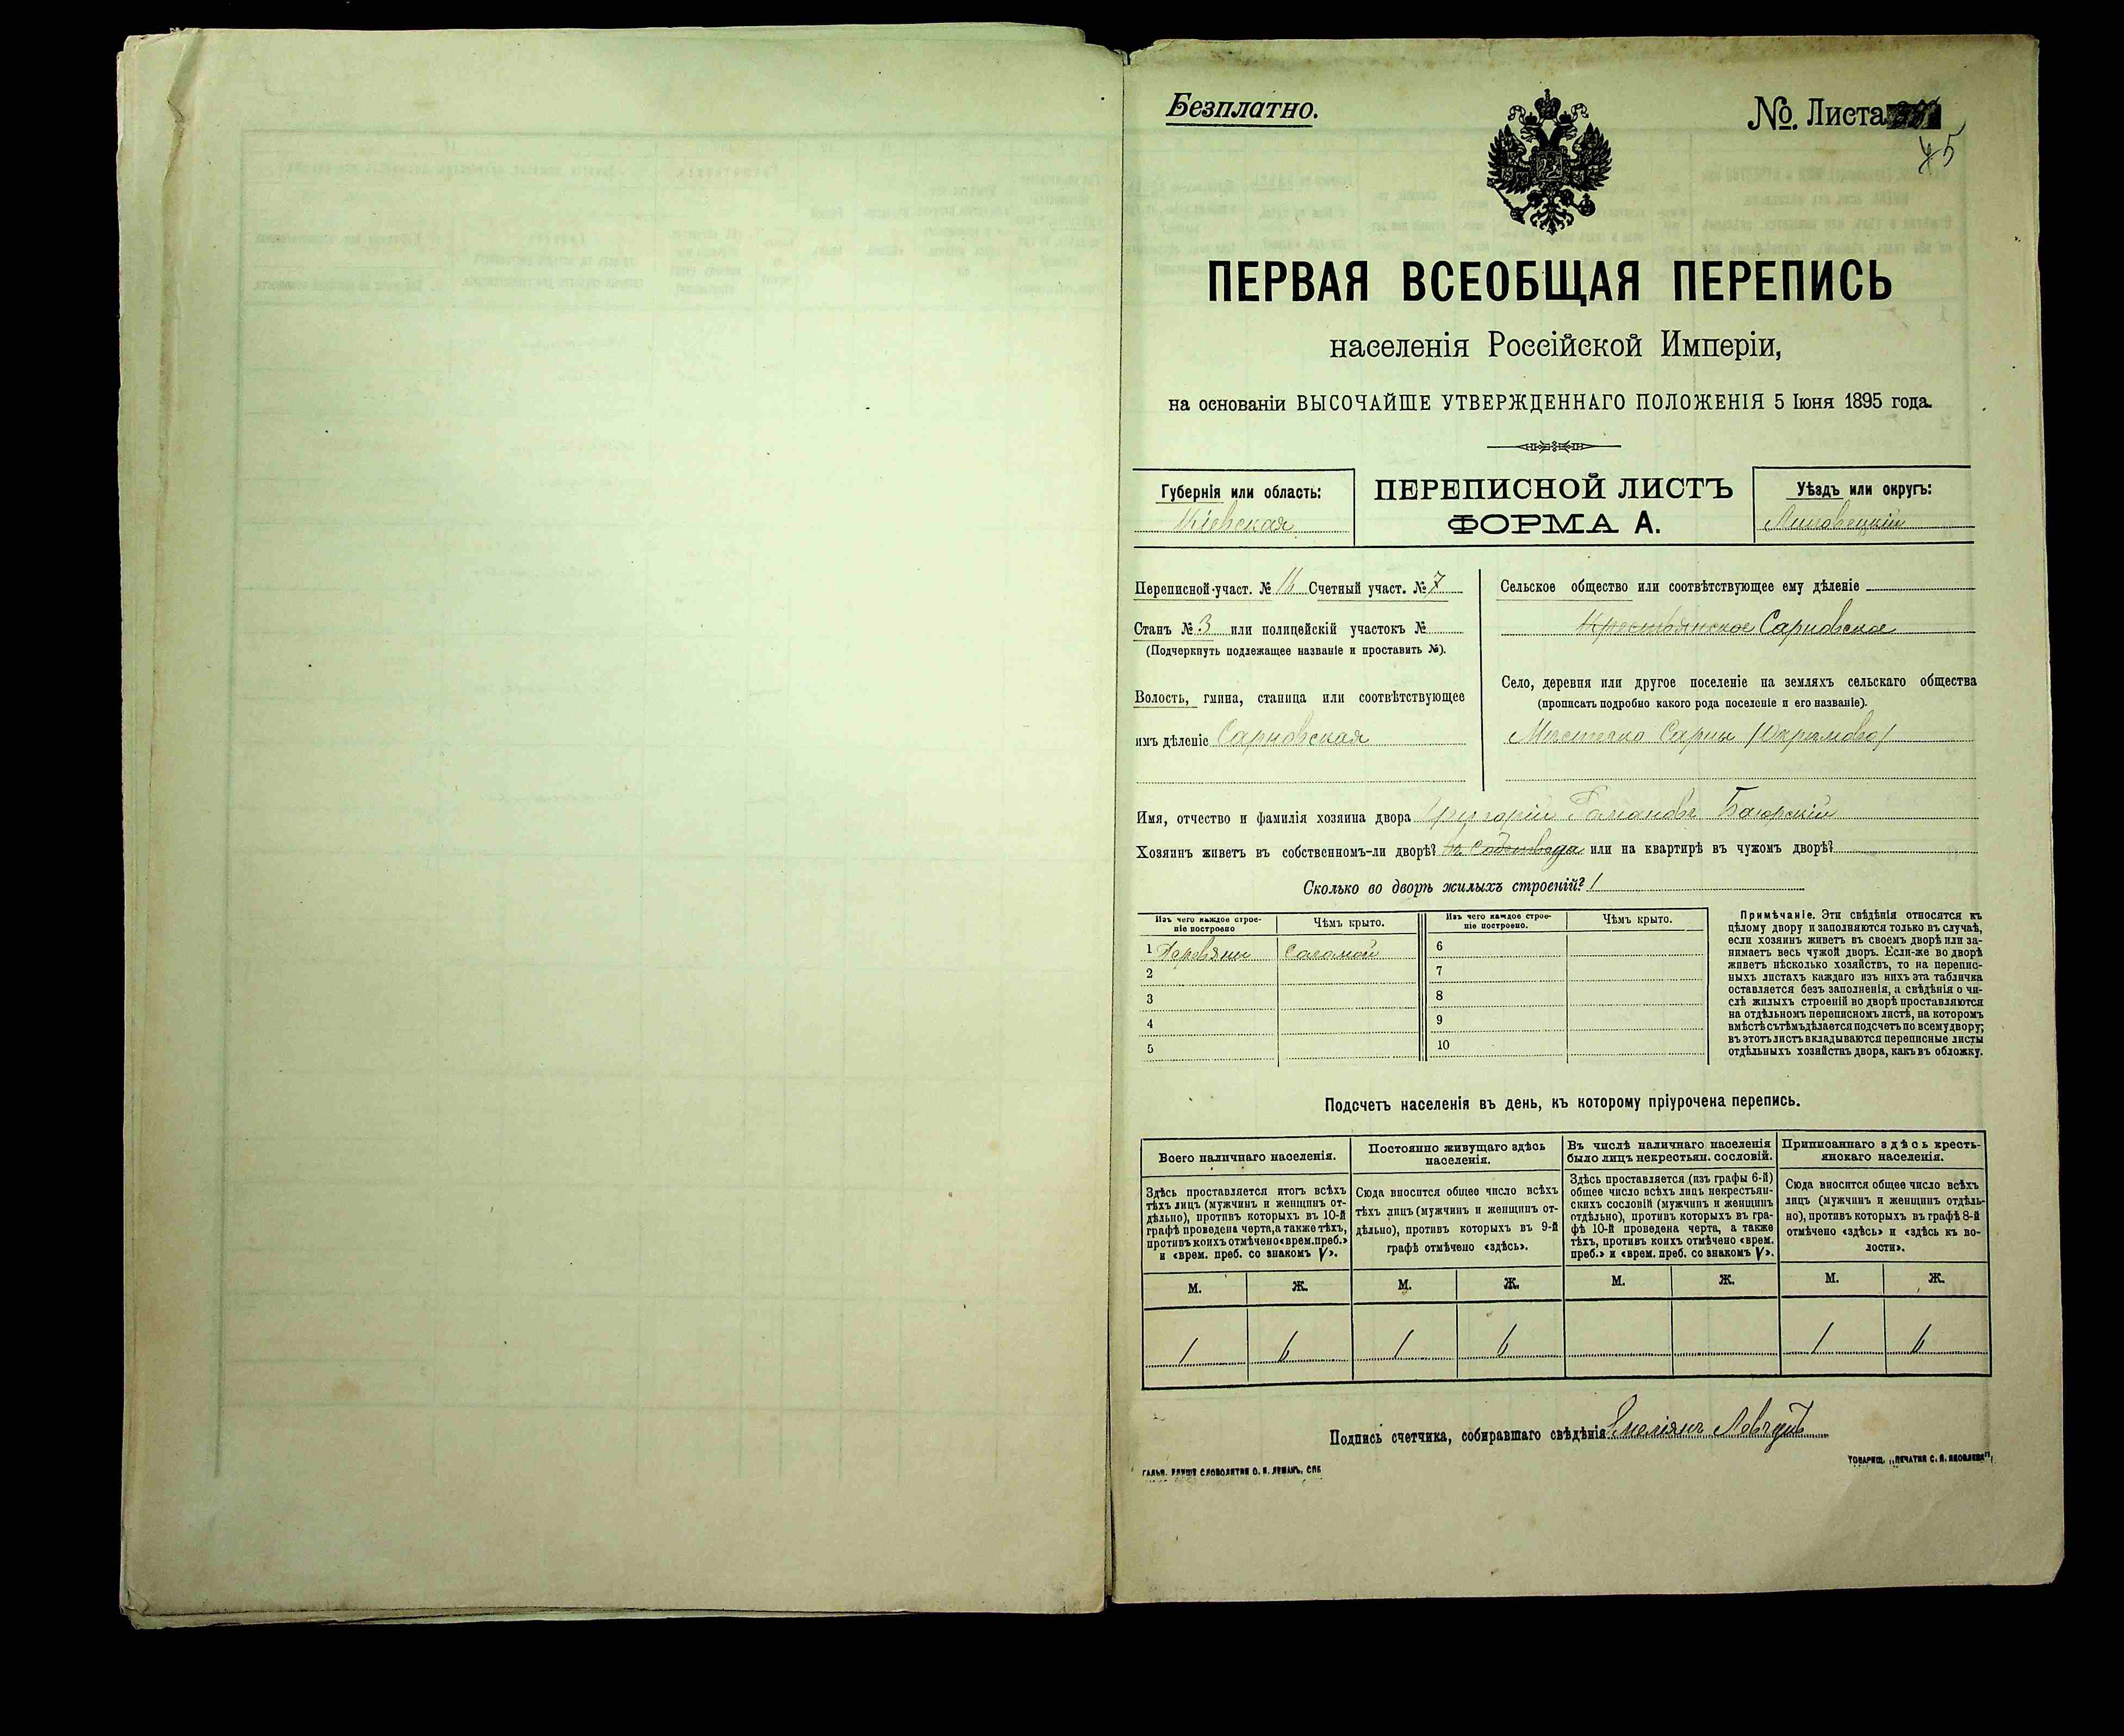 Безплатно.
№ Листа
45
ПЕРВАЯ ВСЕОБЩАЯ ПЕРЕПИСЬ
населенія Россійской Имперіи,
на основаніи ВЫСОЧАЙШЕ УТВЕРЖДЕННАГО ПОЛОЖЕНІЯ 5 Іюня 1895 года.
Губернія или область:
Кіевская
ПЕРЕПИСНОЙ ЛИСТЪ
ФОРМА А.
Уѣздъ или округъ:
Липовецкій
Переписной участ. № 16 Счетный участ. № 7
Станъ № 3 или полицейскій участокъ №
(Подчеркнуть подлежащее названіе и проставить №).
Волость, гмина, станица или соотвѣтствующее
имъ дѣленіе Сарновская
Сельское общество или соотвѣтствующее ему дѣленіе
Крестьянское Сарновское
Село, деревня или другое поселеніе на земляхъ сельскаго общества
(прописать подробно какого рода поселеніе и его названіе).
Местечко Сарны
Имя, отчество и фамилія хозяина двора Григорій Романовъ Баюрскій
Хозяинъ живетъ въ собственномъ-ли дворѣ? или на квартирѣ въ чужомъ дворѣ?
Сколько во дворѣ жилыхъ строеній? 1
Изъ чего каждое строе-
ніе построено
Чѣмъ крыто.
Изъ чего каждое строе-
ніе построено.
Чѣмъ крыто.
1 Деревяны соломой
2
3
4
5
6
7
8
9
10
Примѣчаніе. Эти свѣдѣнія относятся къ
цѣлому двору и заполняются только въ случаѣ,
если хозяинъ живетъ въ своемъ дворѣ или за-
нимаетъ весь чужой дворъ. Если-же во дворѣ
живетъ нѣсколько хозяйствъ, то на перепис-
ныхъ листахъ каждаго изъ нихъ эта табличка
оставляется безъ заполненія, а свѣдѣнія о чи-
слѣ жилыхъ строеній во дворѣ проставляются
на отдѣльномъ переписномъ листѣ, на которомъ
вмѣстѣ съ тѣмъ дѣлается подсчетъ по всему двору;
въ этотъ листъ вкладываются переписные листы
отдѣльныхъ хозяйствъ двора, какъ въ обложку.
Подсчетъ населенія въ день, къ которому пріурочена перепись.
Всего наличнаго населенія.
Здѣсь проставляется итогъ всѣхъ
тѣхъ лицъ (мужчинъ и женщинъ от-
дѣльно), противъ которыхъ въ 10-й
графѣ проведена черта, а также тѣхъ,
противъ коихъ отмѣчено «врем. преб.»
и «врем. преб. со знакомъ V».
Постоянно живущаго здѣсь
населенія.
Сюда вносится общее число всѣхъ
тѣхъ лицъ (мужчинъ и женщинъ от-
дѣльно), противъ которыхъ въ 9-й
графѣ отмѣчено «здѣсь».
Въ числѣ наличнаго населенія
было лицъ некрестьян. сословій.
Здѣсь проставляется (изъ графы 6-й)
общее число всѣхъ лицъ некрестьян-
скихъ сословій (мужчинъ и женщинъ
отдѣльно), противъ которыхъ въ гра-
фѣ 10-й проведена черта, а также
тѣхъ, противъ коихъ отмѣчено «врем.
преб.» и «врем. преб. со знакомъ V».
Приписаннаго здѣсь кресть-
янскаго населенія.
Сюда вносится общее число всѣхъ
лицъ (мужчинъ и женщинъ отдѣль-
но), противъ которыхъ въ графѣ 8-й
отмѣчено «здѣсь» и «здѣсь къ во-
лости».
М. Ж. М. Ж. М. Ж. М. Ж.
1 6 1 6 1 6
Подпись счетчика, собиравшаго свѣдѣнія Емеліянъ Левчукъ
ГАЛЬВ. КЛИШЕ СЛОВОЛИТНИ О. И. ЛЕМАНЪ, СПБ
ТОВАРИЩ. „ПЕЧАТНЯ С. П. ЯКОВЛЕВА"